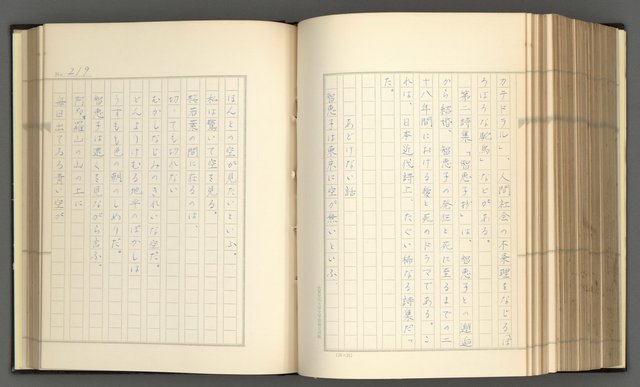 カテドラル」、人間社会の不条理をなじる「ぼ
ろぼろな駝鳥」などがある。
第二詩集「智恵子抄」は、智恵子との邂逅
から結婚、智恵子の発狂と死に至るまでの二
十八年間における愛と死のドラマである。こ
れは、日本近代詩上、たぐい稀なる詩集だっ
た。
あどけない話
智恵子は東京に空が無いといふ、
No. 219
ほんとの空が見たいといふ。
私は驚いて空を見る。
桜若葉の間に在るのは、
切っても切れない
むかしなじみのきれいな空だ。
どんよりけむる地平のぼかしは
うすもも色の朝のしめりだ。
智恵子は遠くを見ながら言ふ。
阿多多羅山の山の上に
毎日出てゐる青い空が